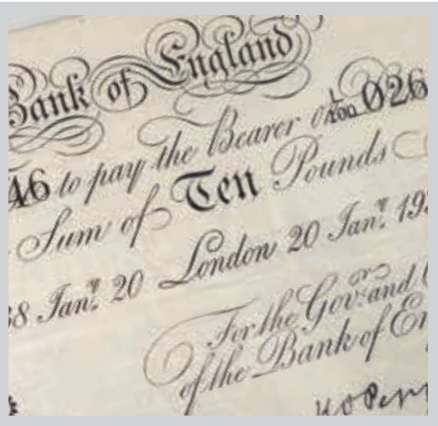 Bank of England
46 to pay the Bearer on L/100 026
Sum of Ten Pounds
38 Jany. 20 London 20 Jany. 19
For the Govr. and
of the Bank of En